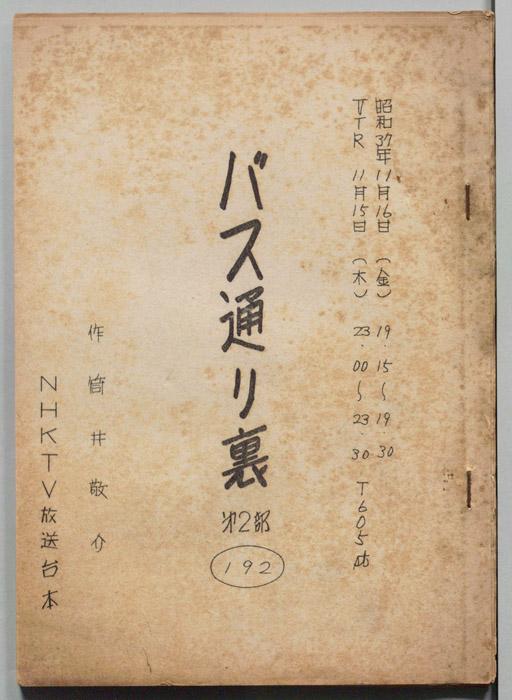 昭和37年11月16日（金）19.15～19.30
VTR 11月15日（木）23.00～23.30 T605
バス通り裏
第2部
192
作 筒井敬介
NHKTV放送台本